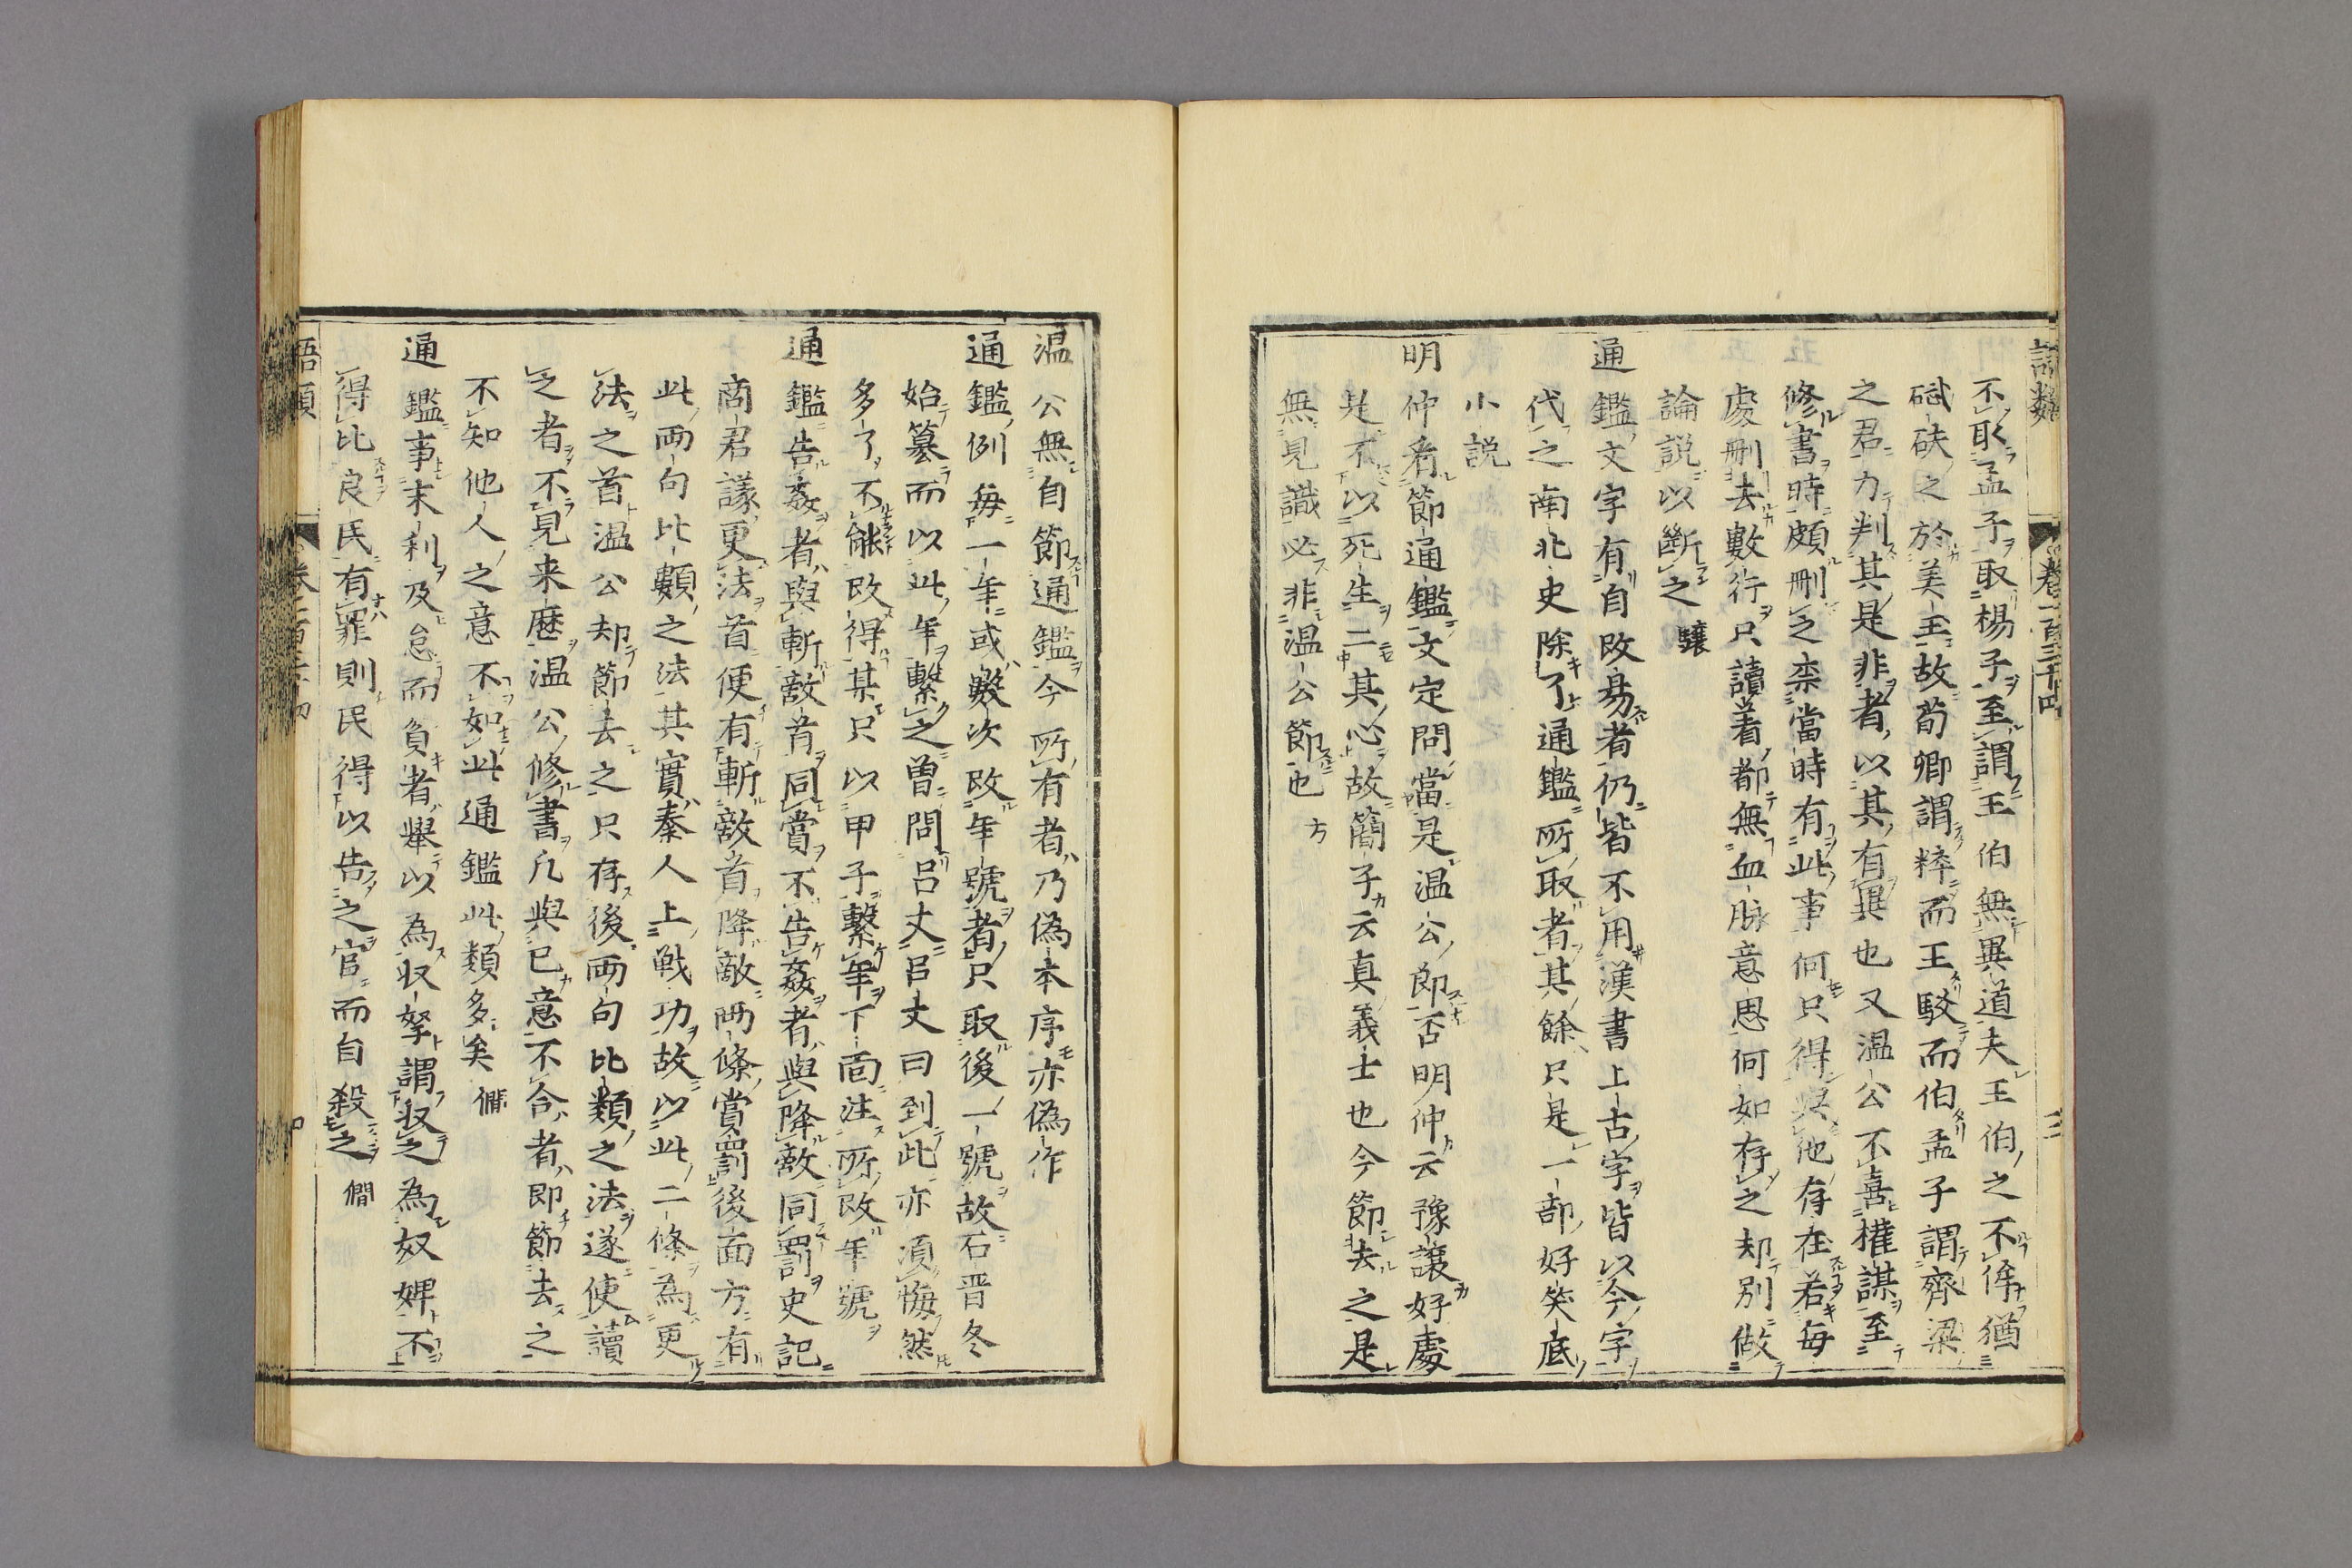 語類
卷一百三十四
三
不取孟子取楊子至謂王伯無異道夫王伯之不侔猶
碔砆之於美玉故荀卿謂粹而王駁而伯孟子謂齊梁
之君力判其是非者以其有異也又温公不喜權謀至
修書時頗刪之柰當時有此事何只得與他存在若每
處刪去數行只讀著都無血脉意思何如存之却別做
論說以斷之 驤
通鑑文字有自改易者仍皆不用漢書上古字皆以今字
代之南北史除了通鑑所取者其餘只是一部好笑底
小説
明仲看節通鑑文定問當是温公節否明仲云豫讓好處
是不以死生二其心故簡子云真義士也今節去之是
無見識必非温公節也 方
温公無自節通鑑今所有者乃偽本序亦偽作
通鑑例每一年或數次改年號者只取後一號故石晋冬
始簒而以此年繫之曽問呂丈呂丈曰到此亦須悔然
多了不能改得某只以甲子繫年下面注所改年號
通鑑告姦者與斬敵首同賞不告姦者與降敵同罰史記
商君議更法首便有斬敵首降敵兩條賞罰後面方有
此兩句比類之法其實秦人上戰功故以此二條為更
法之首温公却節去之只存後兩句比類之法遂使讀
之者不見来歴温公修書凡與已意不合者即節去之
不知他人之意不如此通鑑此類多矣 僩
通鑑事末利及怠而貧者舉以為収孥謂収之為奴婢不
得比良民有罪則民得以告之官而自殺之 僩
語類